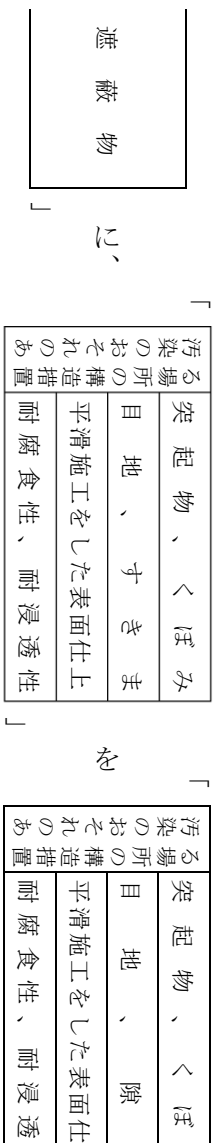 遮蔽物
」に、「
汚染のおそれのあ
る場所の構造措置
突起物、くぼみ
目地、すきま
平滑施工をした表面仕上
耐腐食性、耐浸透性
」を「
汚染のおそれのあ
る場所の構造措置
突起物、くぼ
目地、隙
平滑施工をした表面仕
耐腐食性、耐浸透